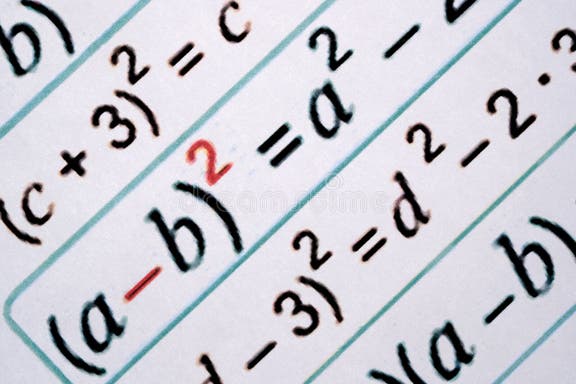 b)
(c + 3)² = c
(a − b)² = a² − 2
d − 3)² = d² − 2 · 3
)(a − b)
dreamstime